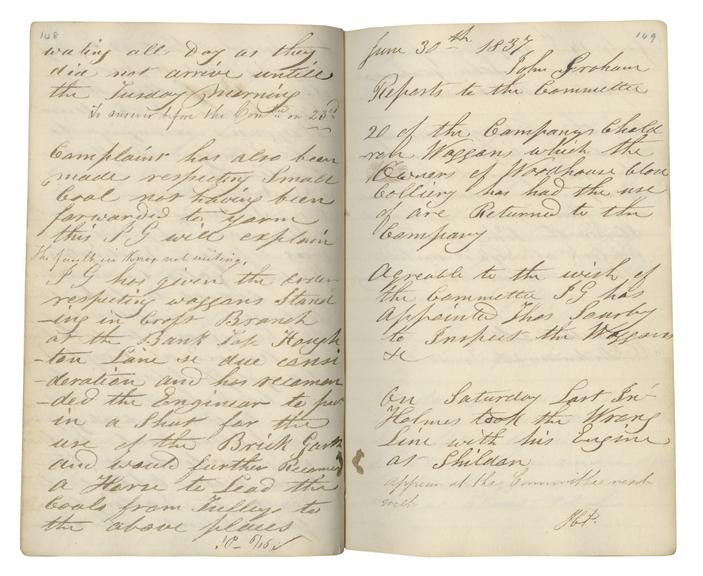 148
wating all Day as they
did not arrive untill
the Tuesday morning
To answer before the Comtee on 23rd
Complaint has also been
made respecting Small
Coal not having been
forwarded to Yarm
this J G will explain
The fault in Knox not writing.
J G has given the order
respecting waggans Stand
-ing in Croft Branch
at the Bank top Haugh
-ton Lane &c due consi
-deration and has recomen
-ded the Engineer to put
in a Shut for the
use of the Brick Garth
and would further Recomend
a Horse to Lead the
Coals from Tulleys to
the above places
149
June 30th 1837
John Graham
Reports to the Committee
20 of the Companys Chald
ron Waggans which the
Owners of Woodhouse Close
Colliery has had the use
of are Returned to the
Company
Agreable to the wish of
the Committee J G has
Appointed Thos Sourby
to Inspect the Waggans
&c
On Saturday Last Jno
Holmes took the Wrong
Line with his Engine
at Shildan
appear at the Committee next
week